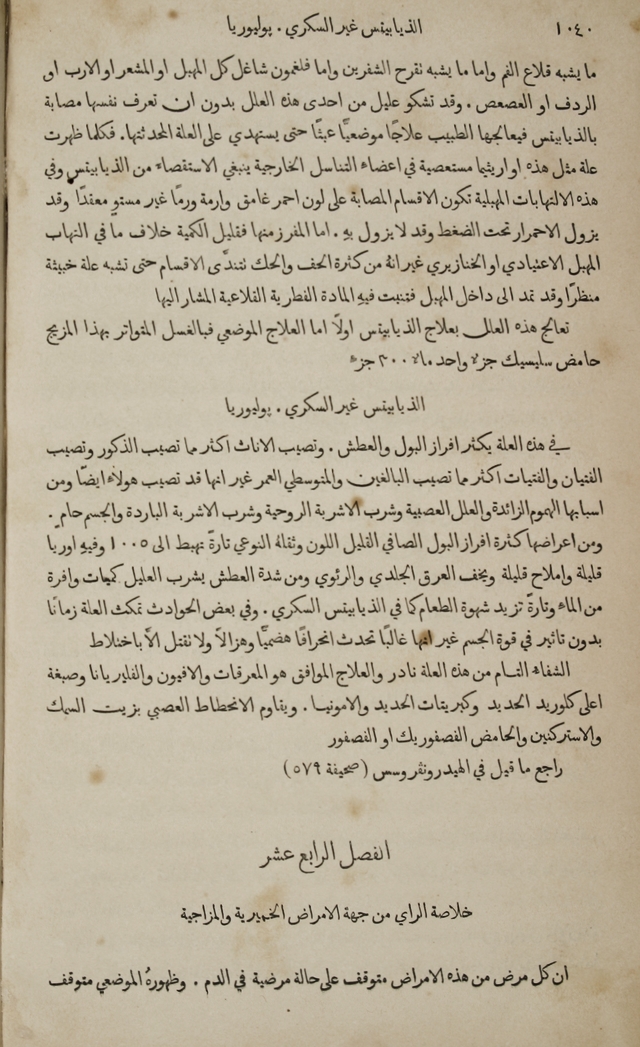 ١٠٤٠ الذيابيتس غير السكري. پوليوريا
ما يشبه قلاع الفم واما ما يشبه نقرح الشفرين واما فلغمون شاغل كل المهبل او المشعر او الارب او
الردف او العصعص. وقد تشكو عليل من احدى هذه العلل بدون ان تعرف نفسها مصابة
بالذيابيتس فيعالجها الطبيب علاجًا موضعيًّا عبثًا حتى يستهدي على العلة المحدثتها. فكلما ظهرت
علة مثل هذه او اريثيما مستعصية في اعضاء التناسل الخارجية ينبغي الاستقصاء من الذيابيتس وفي
هذه الالتهابات المهبلية تكون الاقسام المصابة على لون احمر غامق وارمة ورمًا غير مستوٍ معقدًا وقد
يزول الاحمرار تحت الضغط وقد لا يزول به. اما المفرز منها فقليل الكمية خلاف ما في التهاب
المهبل الاعتيادي او الخنازيري غير انهُ من كثرة الحف والحك تتندَّى الاقسام حتى تشبه علة خبيثة
منظرًا وقد تمد الى داخل المهبل فتنبت فيهِ المادة الفطرية القلاعية المشار اليها
تعالج هذه العلل بعلاج الذيابيتس اولًا اما العلاج الموضعي فبالغسل المتواتر بهذا المزيج
حامض سليسيك جزء واحد ماء ٣٠٠ جزء
الذيابيتس غير السكري. پوليوريا
في هذه العلة يكثر افراز البول والعطش. وتصيب الاناث اكثر مما تصيب الذكور وتصيب
الفتيان والفتيات اكثر مما تصيب البالغين والمتوسطي العمر غير انها قد تصيب هولاء ايضًا ومن
اسبابها الهموم الزائدة والعلل العصبية وشرب الاشربة الروحية وشرب الاشربة الباردة والجسم حامٍ.
ومن اعراضها كثرة افراز البول الصافي القليل اللون وثقله النوعي تارةً يهبط الى ١٠٠٥ وفيهِ اوريا
قليلة واملاح قليلة ويخف العرق الجلدي والرئوي ومن شدة العطش يشرب العليل كميات وافرة
من الماء وتارةً تزيد شهوة الطعام كما في الذيابيتس السكري. وفي بعض الحوادث تمكث العلة زمانًا
بدون تاثير في قوة الجسم غير انها غالبًا تحدث انحرافًا هضميًّا وهزالًا ولا تقتل الاَّ باختلاط
الشفاء التام من هذه العلة نادر والعلاج الموافق هو المعرقات والافيون والفليريانا وصبغة
اعلى كلوريد الحديد وكبريتات الحديد والامونيا. ويقاوم الانحطاط العصبي بزيت السمك
والاستركنين والحامض الفصفوريك او الفصفور
راجع ما قيل في الهيدرونڤروسس (صحيفة ٥٧٩)
الفصل الرابع عشر
خلاصة الراي من جهة الامراض الخميرية والمزاجية
ان كل مرض من هذه الامراض متوقف على حالة مرضية في الدم. وظهورهُ الموضعي متوقف